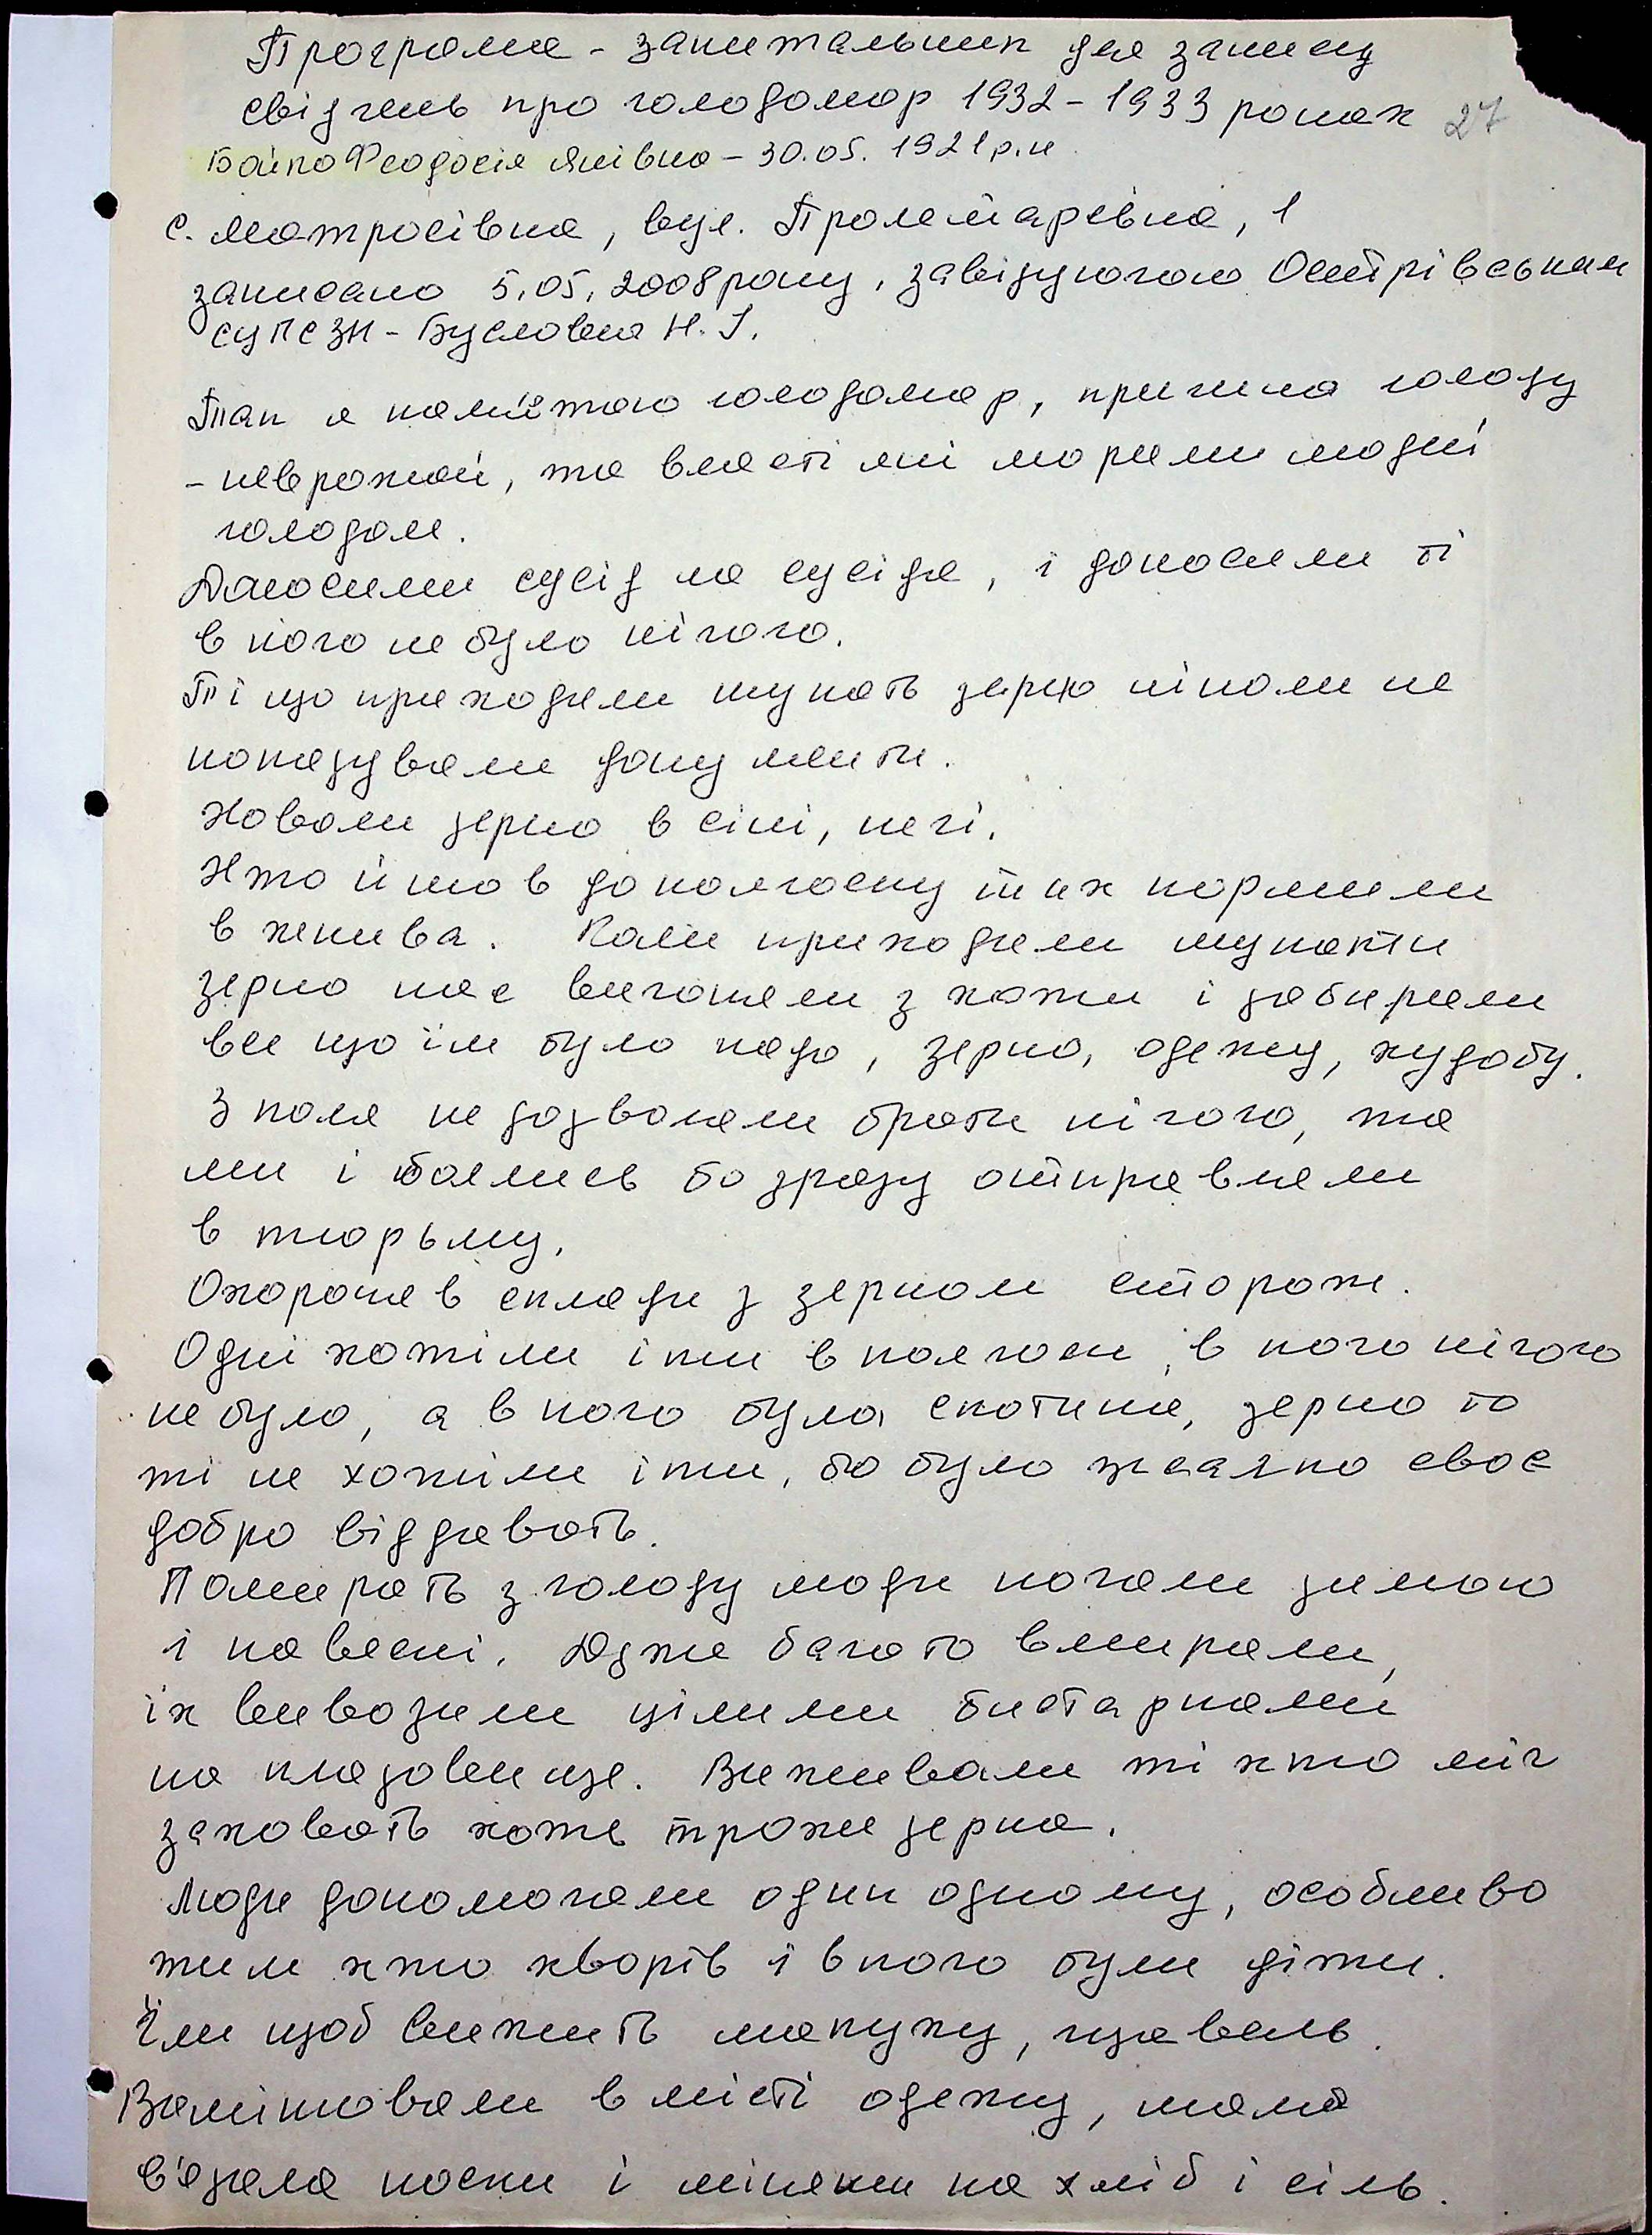 Програма - запитальник для запису
свідчень про голодомор 1932 - 1933 роках 27
Бойко Феодосія Яківна - 30.05. 1921 р.н
с. Матросівка, вул. Пролетарська, 1
записано 5.05.2008 року, завідуючою Острівським
СУПСЗН - Буслова Н. І.
Так я пам'ятаю голодомор, причина голоду
- неврожай, та власті які морили людей
голодом.
Доносили сусід на сусіда, і доносили ті
в кого не було нічого.
Ті що приходили шукать зерно ніколи не
показували документи.
Ховали зерно в сіні, печі.
Хто йшов до колгоспу тих кормили
в жнива. Коли приходили шукати
зерно нас виганяли з хати і забирали
все що їм було надо, зерно, одежу, худобу.
З поля не дозволяли брати нічого, та
ми і боялись бо зразу отправляли
в тюрьму.
Охороняв склади з зерном сторож.
Одні хотіли іти в колгосп, в кого нічого
не було, а в кого була скотина, зерно то
ті не хотіли іти, бо було жалко своє
добро віддавать.
Помирать з голоду люди почали зимою
і на весні. Дуже багато вмирали,
їх вивозили цілими бистарками
на кладовище. Виживали ті хто міг
заховать хоть трохи зерна.
Люди допомагали один одному, особливо
тим хто хворів і в кого були діти.
Їли щоб вижить макуху, щавель.
Вимінювали в місті одежу, мама
в'язала носки і міняли на хліб і сіль.